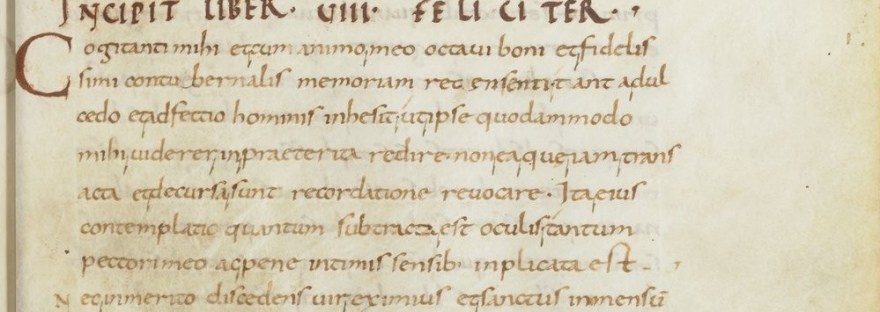 INCIPIT LIBER · VIIII · FELICITER ·
Cogitanti mihi et cum animo meo octavi boni et fidelis
simi contubernalis memoriam recensenti tanta dul
cedo et adfectio hominis inhesit ut ipse quodammodo
mihi viderer in praeterita redire non ea quae iam trans
acta et decursa sunt recordatione revocare · Ita eius
contemplatio quantum subtracta est oculis tantum
pectori meo ac pene intimis sensib· inplicata est ·
Nec inmerito discedens vir eximius et sanctus inmensū